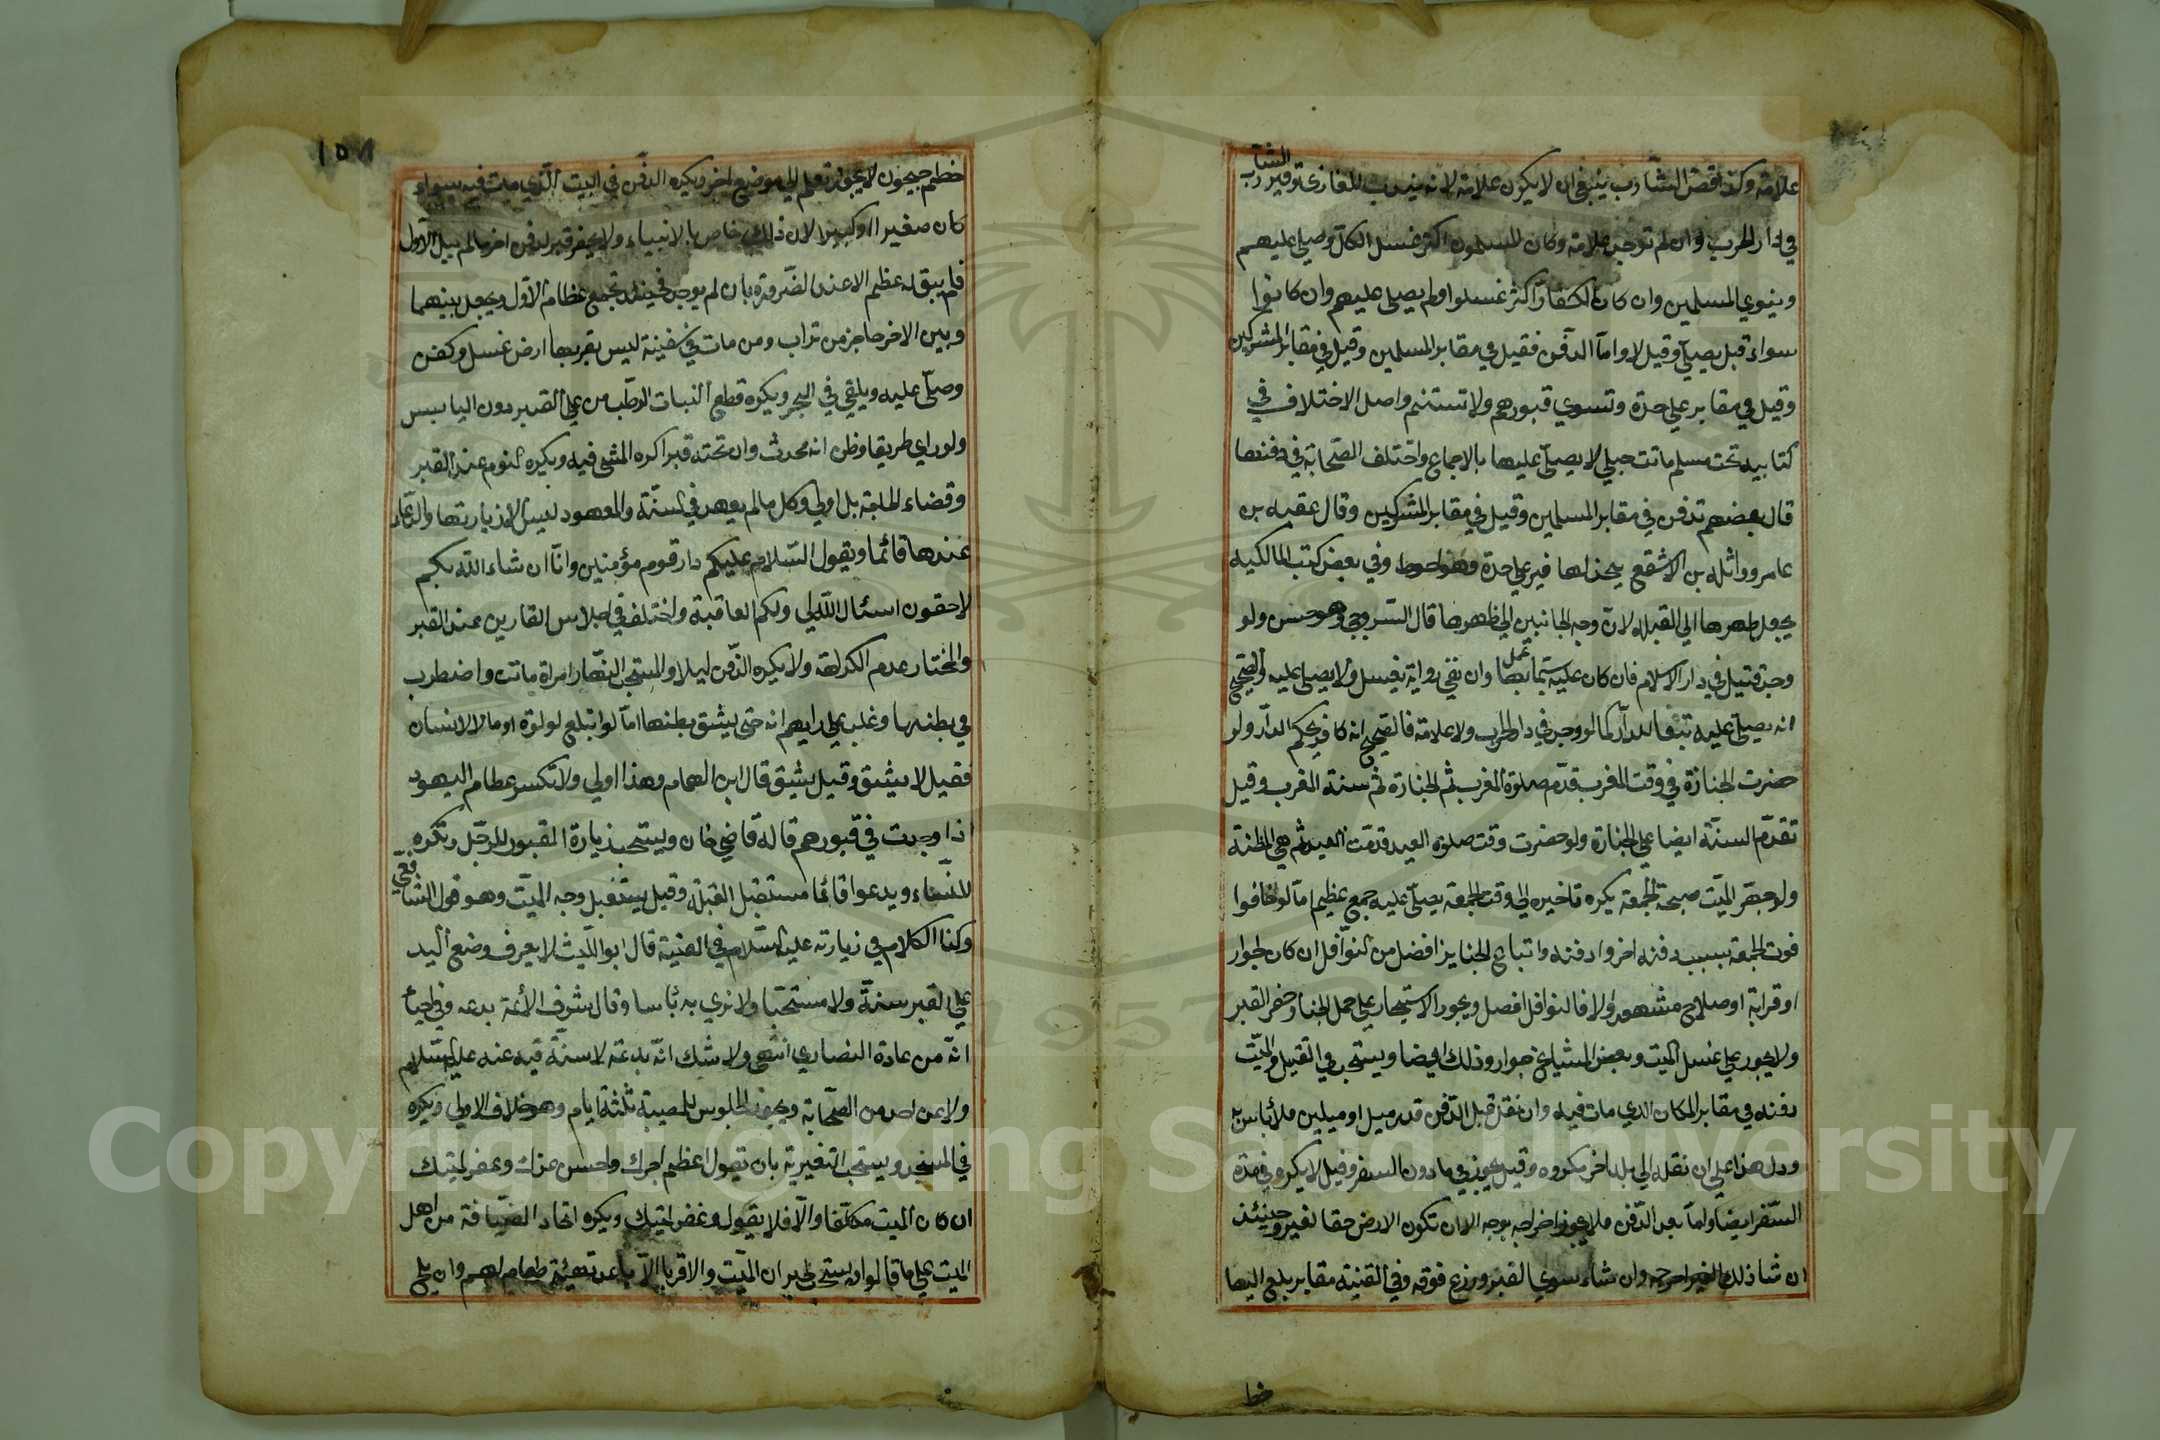 علامة وكذا قص الشارب ينبغي ان لا يكون علامة لانه يندب للغازي توفير الشارب
في دار الحرب وان لم توجد علامة وكان المسلمون اكثر غسل الكل وصلي عليهم
وينوي المسلمين وان كان الكفار اكثر غسلوا ولم يصلي عليهم وان كانوا
سواء قيل يصلي وقيل لا واما الدفن فقيل في مقابر المسلمين وقيل في مقابر المشركين
وقيل في مقابر علي حدة وتسوي قبورهم ولا تسنم واصل الاختلاف في
كتابيه تحت مسلم ماتت حبلي لا يصلي عليها بالاجماع واختلف الصحابة في دفنها
قال بعضهم تدفن في مقابر المسلمين وقيل في مقابر المشركين وقال عقبه بن
عامر وواثلة بن الاشقع يتخذ لها قبر علي حدة وهو احوط وفي بعض كتب المالكيه
يجعل ظهرها الي القبلة لان وجه الجانبين الي ظهرها قال السروجي وهو حسن ولو
وجد قتيل في دار الاسلام فان كان عليه سيما عمل بها وان نفي رواية يغسل ولا يصلي عليه والصحيح
انه يصلي عليه تبعا للدار كما لو وجد في دار الحرب ولا علامة فالصحيح انه كافر بحكم الدار ولو
حضرت الجنازة في وقت المغرب قدم صلوة المغرب ثم الجنازة ثم سنة المغرب وقيل
تقدم السنة ايضا علي الجنازة ولو حضرت وقت صلوة العيد قدمت العيد ثم هي الخطبة
ولو جهز الميت صبحة الجمعة يكره تاخيره الي وقت الجمعة يصلي عليه جمع عظيم اما لو خافوا
فوت الجمعة بسبب دفنه اخروا دفنه واتباع الجنايز افضل من النوافل ان كان لجوار
او قرابة او صلاح مشهور والا فالنوافل افضل ويجوز الاستيجار علي حمل الجنازة وحفر القبر
ولا يجوز علي غسل الميت وبعض المشايخ جوز ذلك ايضا ويستحب في القتيل والميت
دفنه في مقابر المكان الذي مات فيه وان نقل قبل الدفن قدر ميل او ميلين فلا باس به
ودل هذا علي ان نقله الي بلد اخر مكروه وقيل يجوز في ما دون السفر وقيل لا يكره في مدة
السفر ايضا واما بعد الدفن فلا يجوز اخراجه بوجه الا ان تكون الارض حقا لغير وحينئذ
ان شا ذلك الغير اخرجه وان شاء سوي القبر وزرع فوقه وفي القنية مقابر بلغ اليها
خطا
١٥٨
خطم جيحون لا يجوز نقلهم الي موضع اخر ويكره الدفن في البيت الذي مات فيه سواء
كان صغيرا او كبيرا لان ذلك خاص بالانبياء ولا يحفر قبر لدفن اخر ما لم يبل الاول
فلم يبق له عظم الا عند الضرورة بان لم يوجد فحينئذ تجمع عظام الاول ويجعل بينهما
وبين الاخر حاجز من تراب ومن مات في سفينة ليس بقربها ارض غسل وكفن
وصلي عليه ويلقي في البحر ويكره قطع النبات الرطب من علي القبر دون اليابس
ولو راي طريقا وظن انه محدث وان تحته قبرا كره المشي فيه ويكره النوم عند القبر
وقضاء الحاجة بل اولي وكل ما لم يعهد في السنة والمعهود ليس الا زيارتها والدعاء
عندها قائما ويقول السلام عليكم دار قوم مؤمنين وانا ان شاء الله بكم
لاحقون اسئال الله لي ولكم العاقبة واختلف في اجلاس القارين عند القبر
والمختار عدم الكراهة ولا يكره الدفن ليلا والمستحب النهار امراة ماتت واضطرب
في بطنها وغلب علي رايهم انه حي يشق بطنها اما لو ابتلع لولوة او مالا لانسان
فقيل لا يشق وقيل يشق قال ابن الهمام وهذا اولي ولا تكسر عظام اليهود
اذا وجدت في قبورهم قاله قاضي خان ويستحب زيارة القبور للرجل وتكره
للنساء ويدعوا قائما مستقبل القبلة وقيل يستقبل وجه الميت وهو قول الشافعي
وكذا الكلام في زيارته عليه السلام في القنية قال ابو الليث لا يعرف وضع اليد
علي القبر سنة ولا مستحبا ولا نري به باسا وقال شرف الائمة بدعه وفي احياء
انه من عادة النصاري انتهي ولا شك انه بدعة لا سنة فيه عنه عليه السلام
ولا عن احد من الصحابة ويجوز الجلوس للمصيبة ثلثة ايام وهو خلاف الاولي ويكره
في المسجد ويستحب التعزية بان يقول اعظم اجرك واحسن عزاك وغفر لميتك
ان كان الميت مكلفا والا فلا يقول وغفر لميتك ويكره اتخاذ الضيافة من اهل
الميت علي ما قالوا ويستحب لجيران الميت والاقربا الاباعد تهيئة طعام لهم وان يلح